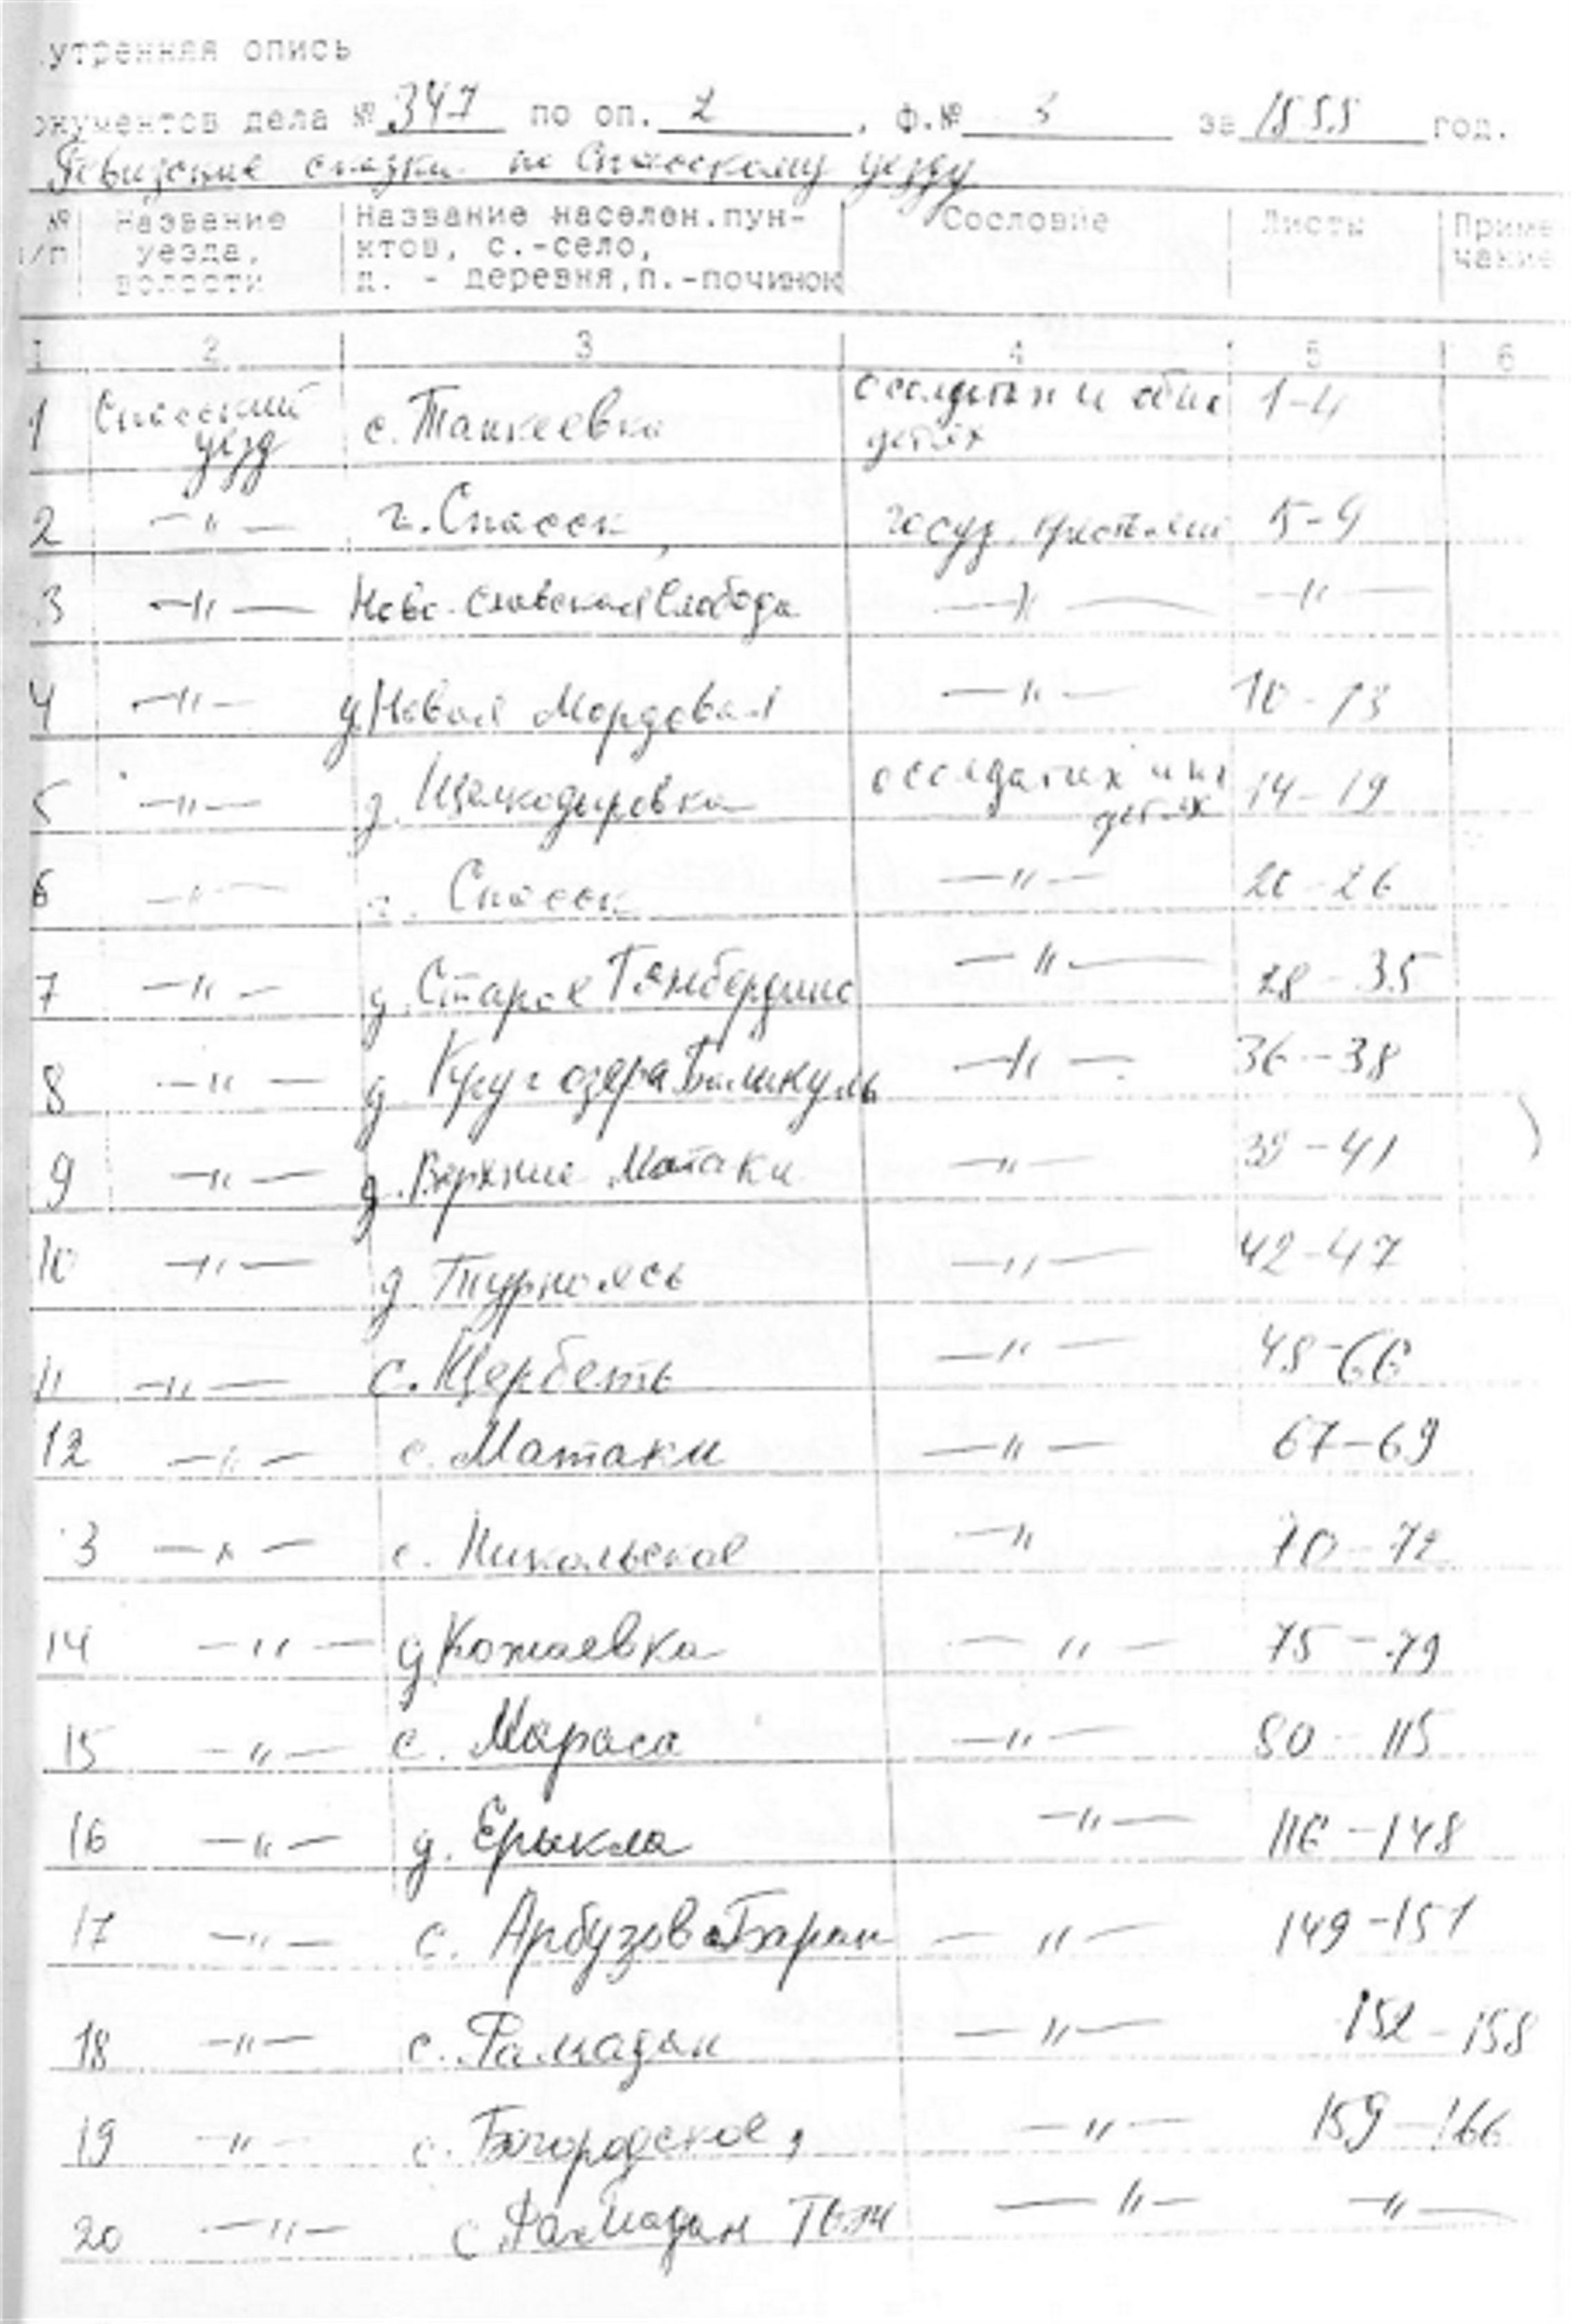 утренняя опись
документов дела № 347 по оп. 2, ф.№ 3 за 1858 год.
Ревизские сказки по Спасскому уезду
№ п/п | Название уезда, волости | Название населен.пунктов, с.-село, д. - деревня,п.-починок | Сословие | Листы | Примечание
1 | 2 | 3 | 4 | 5 | 6
1 Спасский уезд с. Танкеевка о солдатах и их детях 1-4
2 -"- г. Спасск госуд. крестьяне 5-9
3 -"- Ново-Славская Слобода -"- -"-
4 -"- д. Новая Мордовая -"- 10-13
5 -"- д. о солдатах и их детях 14-19
6 -"- г. Спасск -"- 20-26
7 -"- д. Старое -"- 28-35
8 -"- д. озера -"- 36-38
9 -"- д. Верхние Матаки -"- 39-41
10 -"- д. Турнаясь -"- 42-47
11 -"- с. Щербеть -"- 48-66
12 -"- с. Матаки -"- 67-69
3 -"- с. Никольское -"- 70-72
14 -"- д. Кожаевка -"- 75-79
15 -"- с. Мараса -"- 80-115
16 -"- д. Ерыкла -"- 116-148
17 -"- с. Арбузов Баран -"- 149-151
18 -"- с. Рамадан -"- 152-158
19 -"- с. Богородское, -"- 159-166
20 -"- с. Рамадан тож -"- -"-